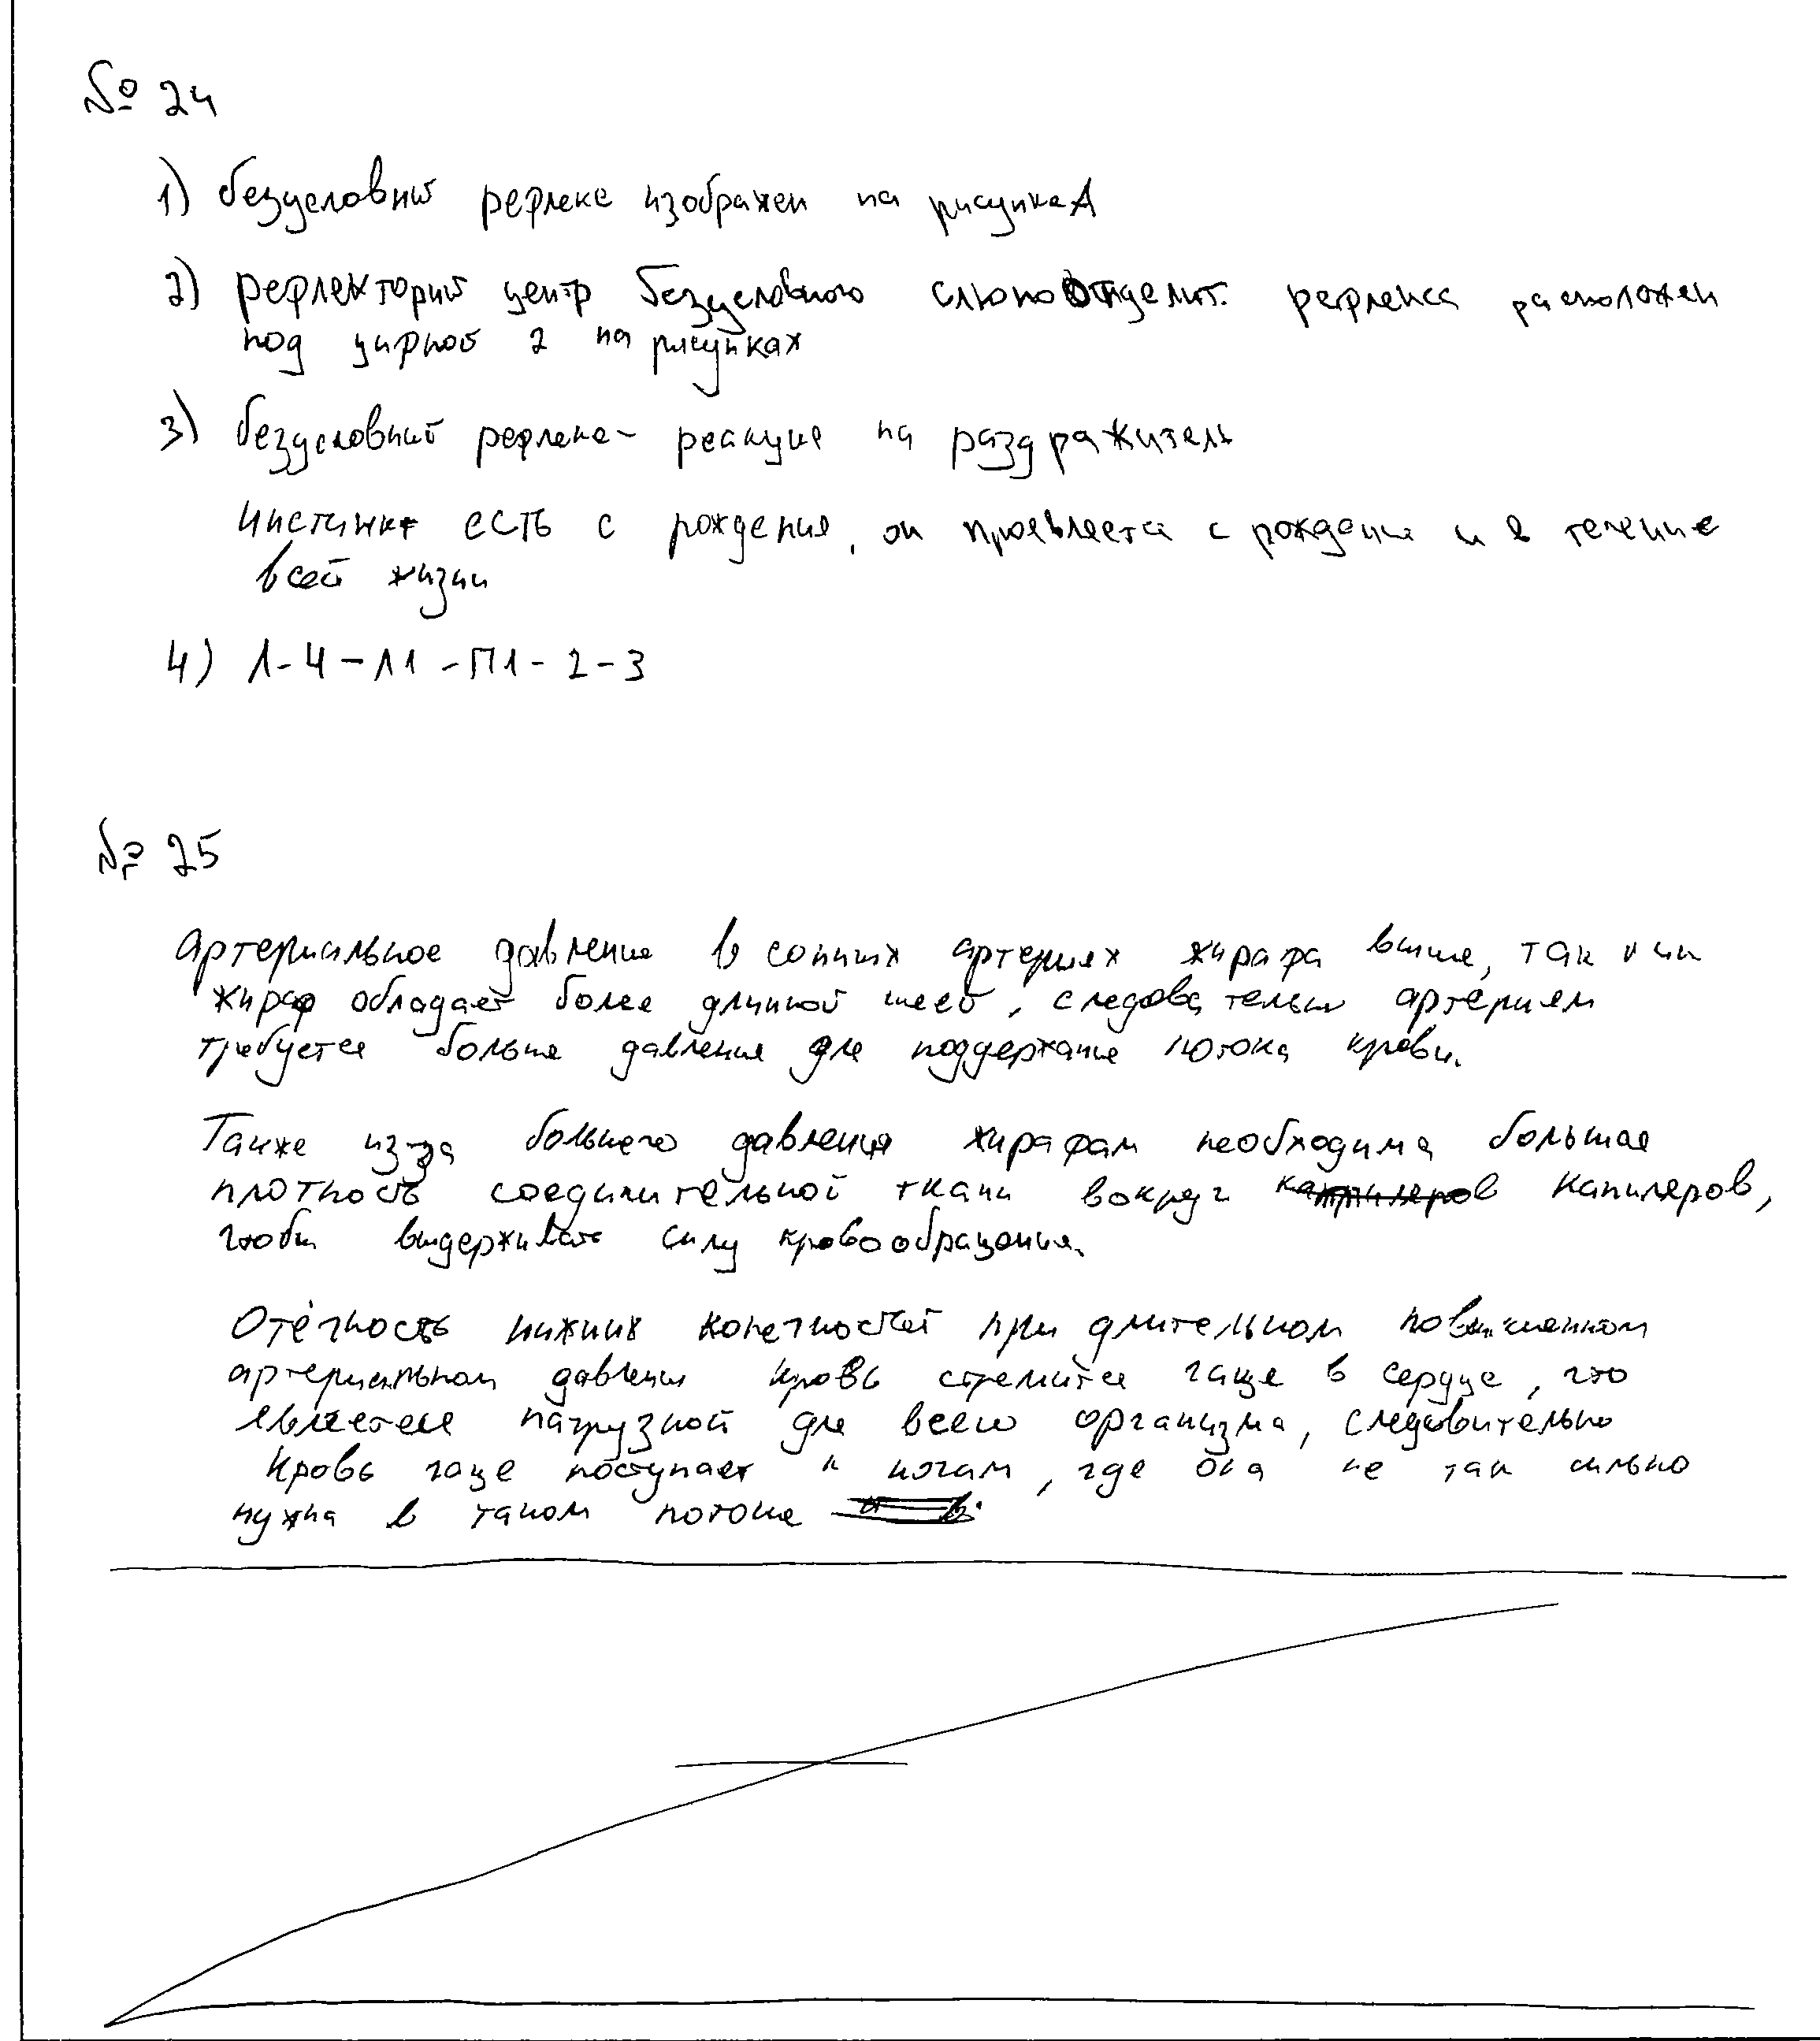 № 24
1) безусловный рефлекс изображен на рисунке А
2) рефлекторный центр безусловного слюноотделит. рефлекса расположен
под цифрой 2 на рисунках
3) безусловный рефлекс - реакция на раздражитель
инстинкт есть с рождения, он проявляется с рождения и в течение
всей жизни
4) 1-4-Л1-П1-2-3
№ 25
Артериальное давление в сонных артериях жирафа выше, так как
жираф обладает более длинной шеей, следовательно артериям
требуется больше давления для поддержание потока крови.
Также из-за большего давления жирафам необходима большая
плотность соединительной ткани вокруг капиляров,
чтобы выдерживать силу кровообращения.
Отёчность нижних конечностей при длительном повышенном
артериальном давлении кровь стремится чаще в сердце, что
является нагрузкой для всего организма, следовательно
кровь чаще поступает к ногам, где она не так сильно
нужна в таком потоке